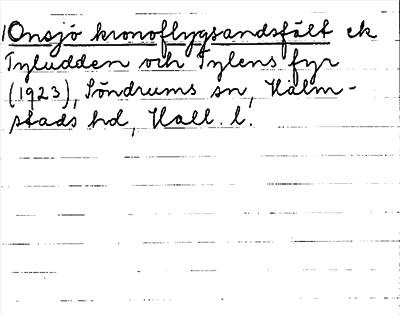 Onsjö kronoflygsandsfält ek
Tyludden och Tylens fyr
(1923), Söndrums sn, Halm-
stads hd, Hall. l.